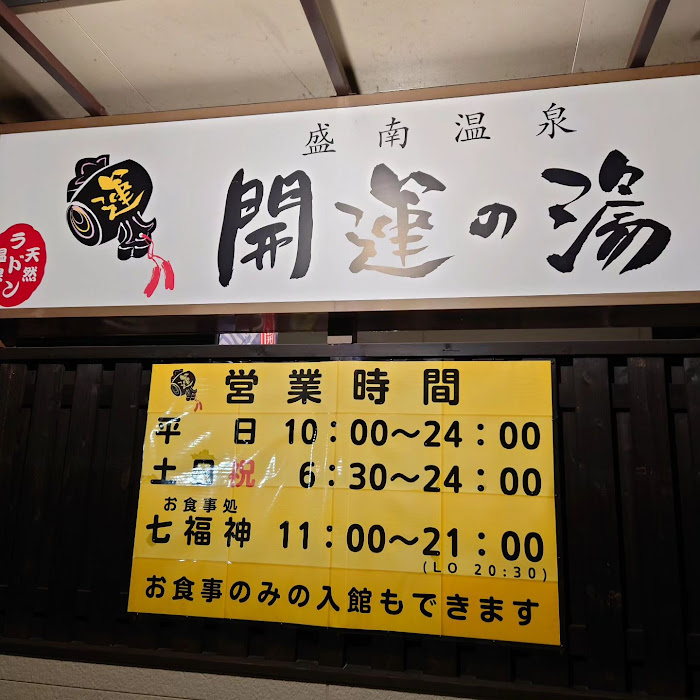 盛南温泉
運
開運の湯
天然
ラドン
温泉
営業時間
平日 10:00～24:00
土日祝 6:30～24:00
お食事処
七福神 11:00～21:00
(LO 20:30)
お食事のみの入館もできます